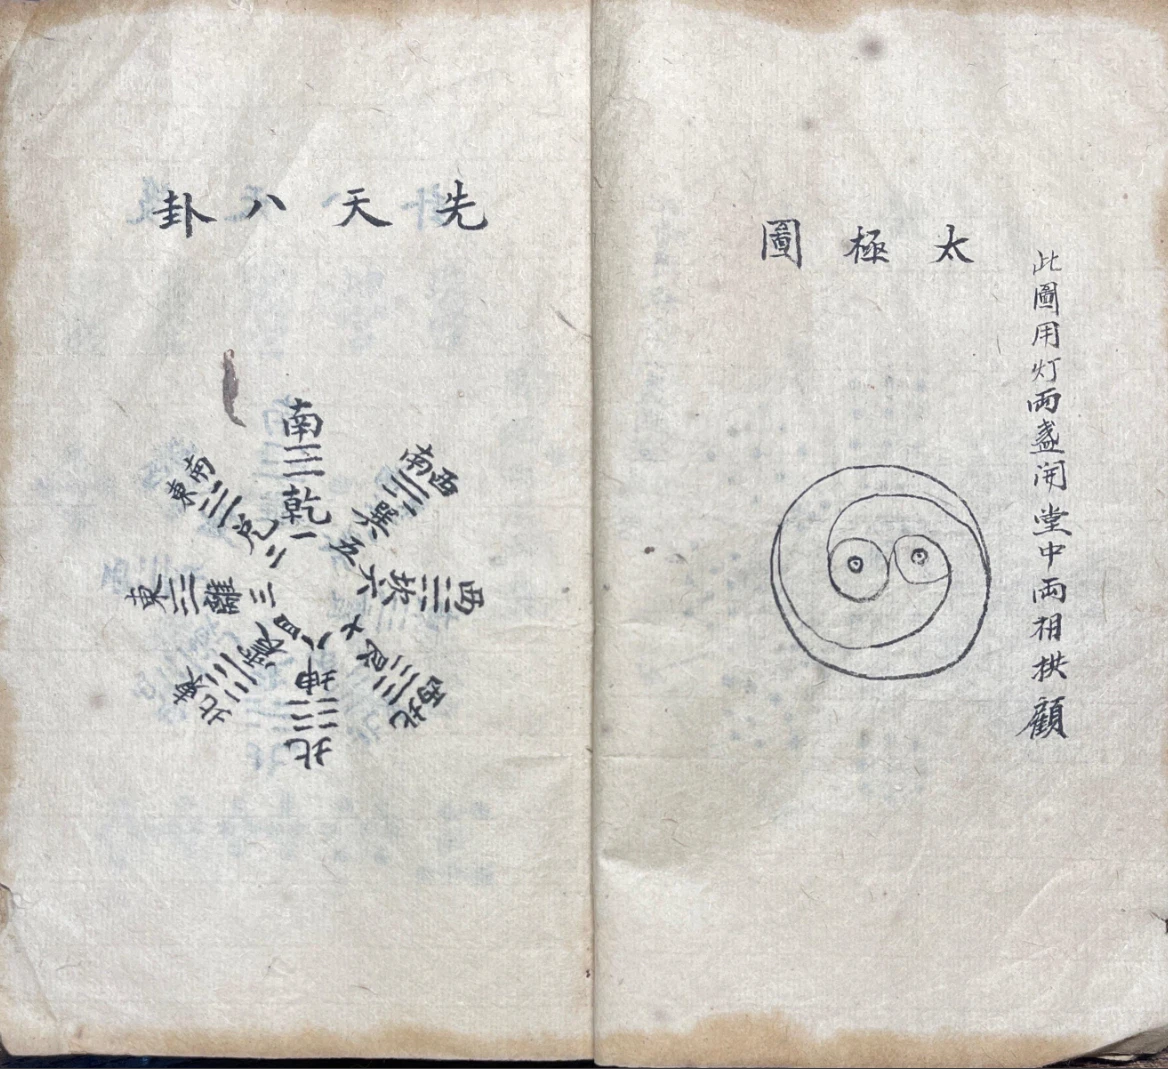 此圖用灯両盞開堂中両相栱顧
太極圖
先天八卦
南乾一
東南兌二
東離三
東北震四
西南巽五
西坎六
西北艮七
北坤八